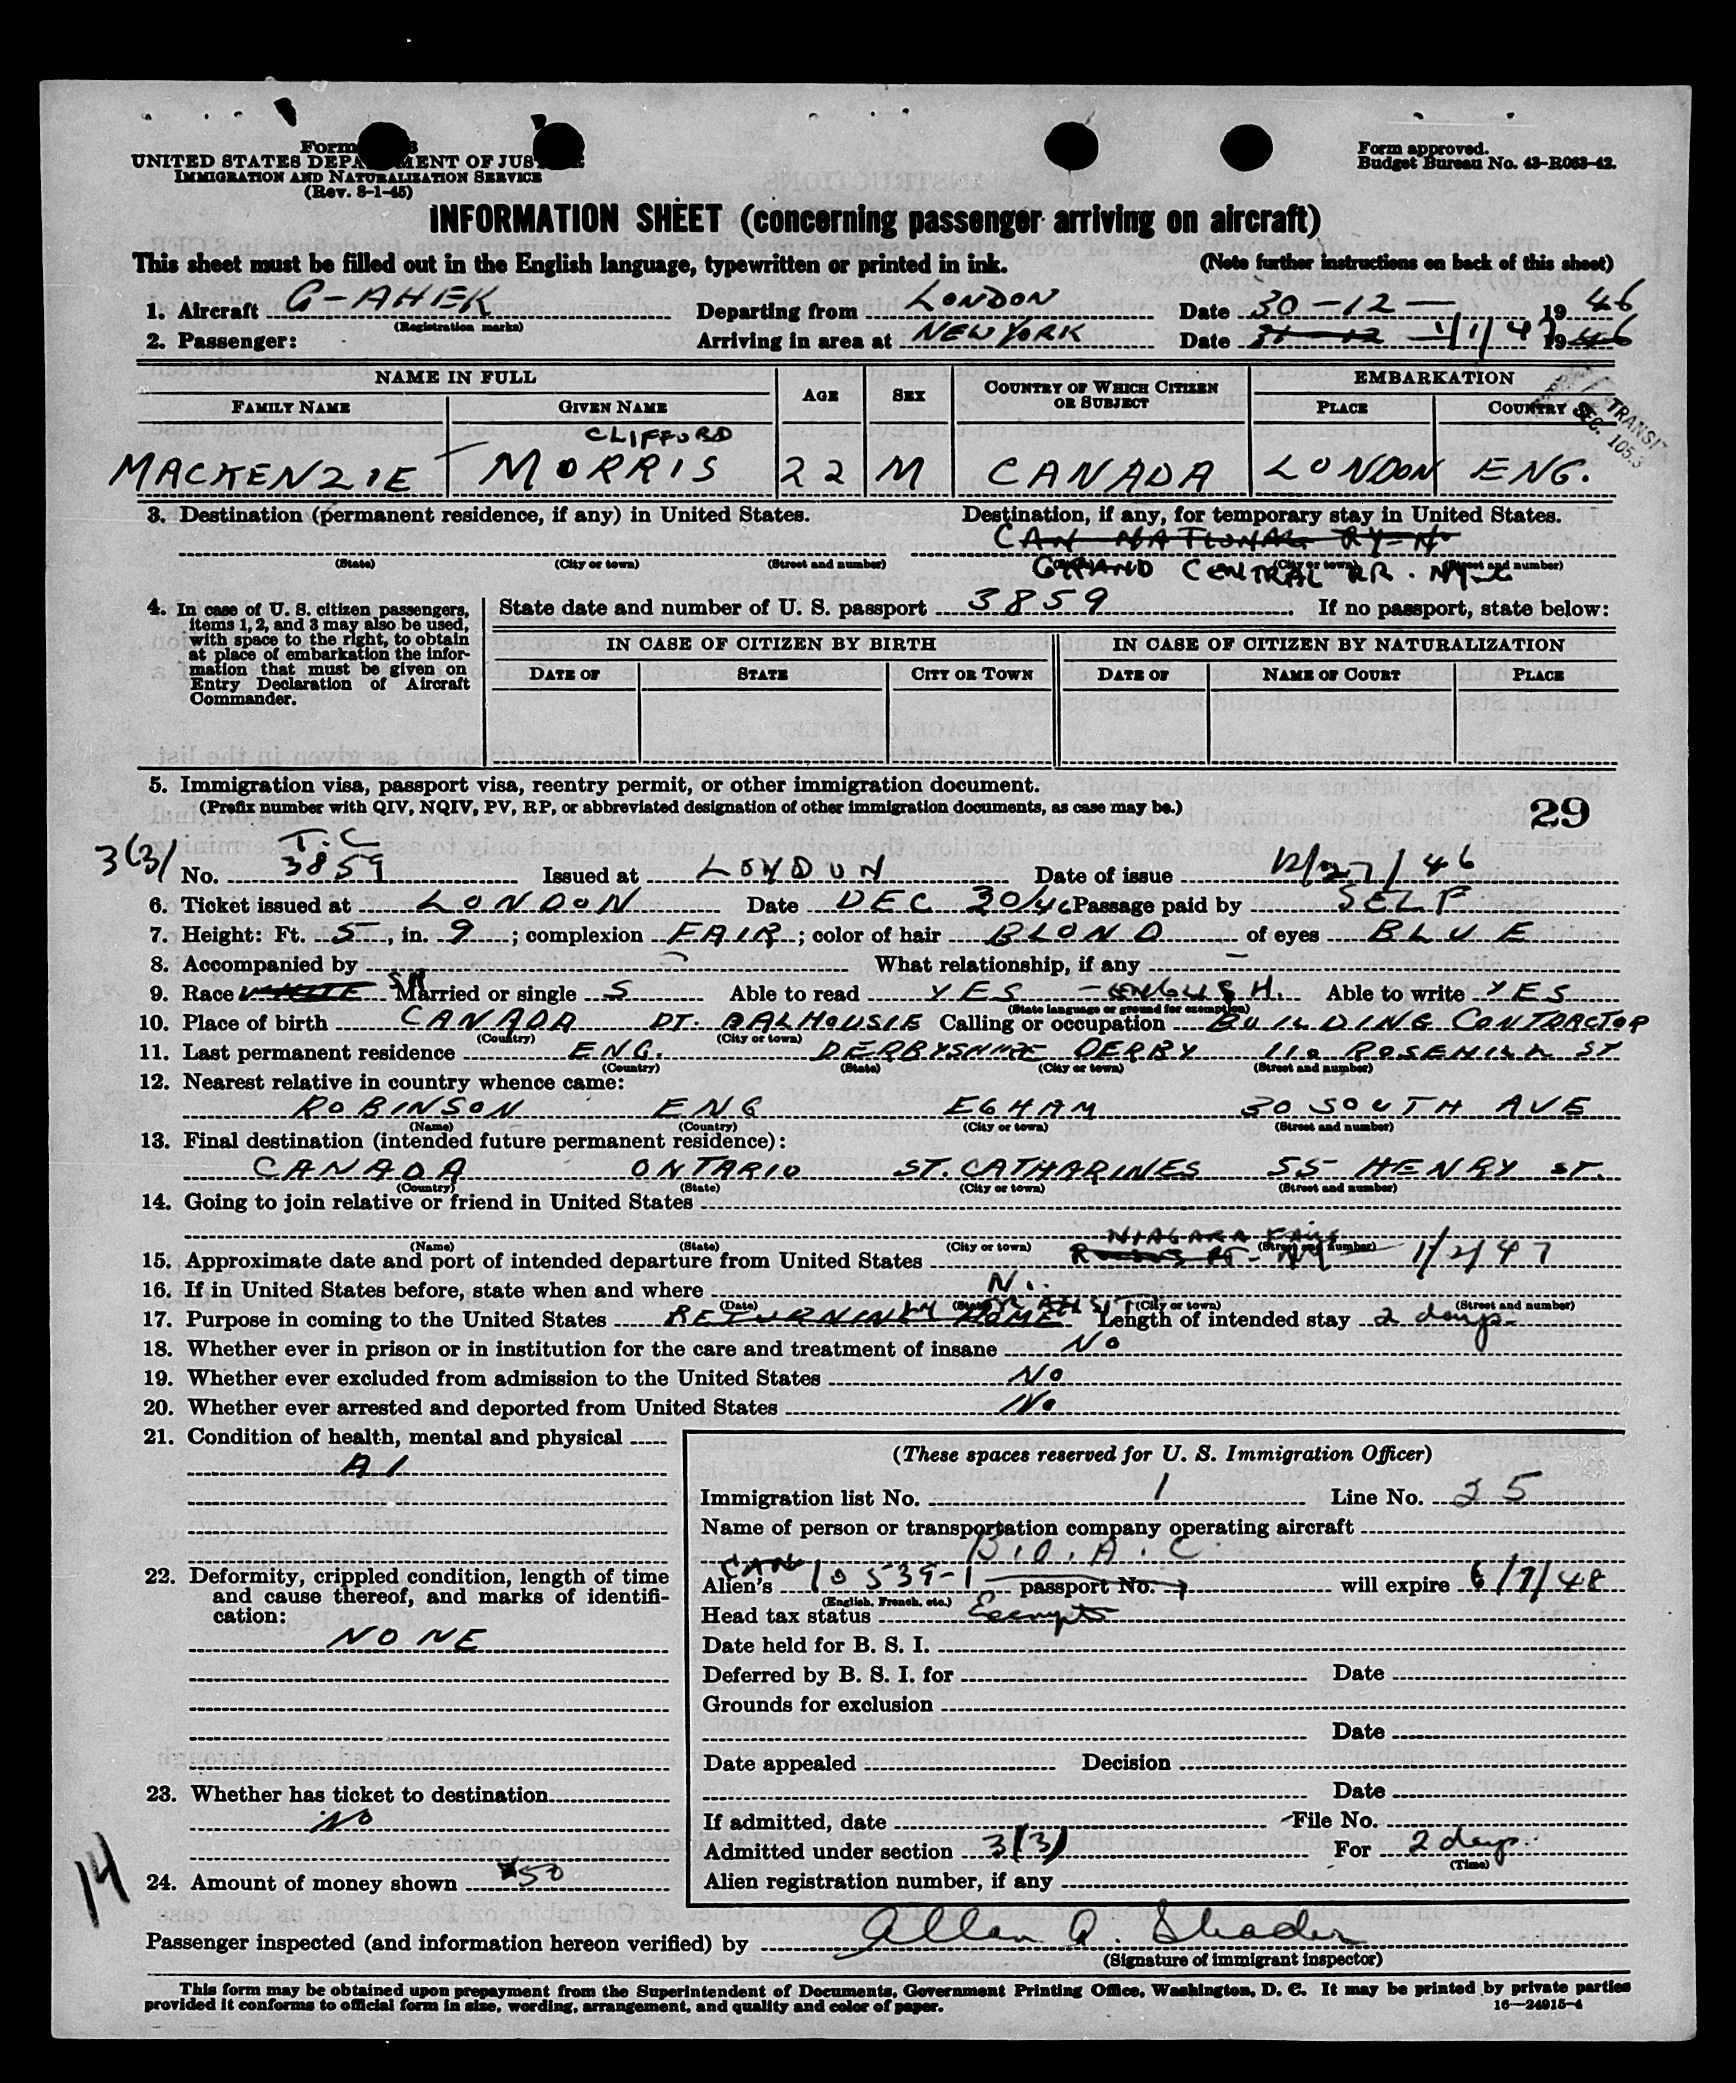 Form
UNITED STATES DEPARTMENT OF JUSTICE
IMMIGRATION AND NATURALIZATION SERVICE
(Rev. 8-1-45)
Form approved.
Budget Bureau No. 43-R063-42.
INFORMATION SHEET (concerning passenger arriving on aircraft)
This sheet must be filled out in the English language, typewritten or printed in ink. (Note further instructions on back of this sheet)
1. Aircraft G-AHEK Departing from LONDON Date 30-12- 1946
(Registration marks)
2. Passenger: Arriving in area at NEW YORK Date 31-12 1/1/47 1946
NAME IN FULL AGE SEX COUNTRY OF WHICH CITIZEN OR SUBJECT EMBARKATION
FAMILY NAME GIVEN NAME PLACE COUNTRY
TRANSIT
SEC. 105.3
CLIFFORD
MACKENZIE MORRIS 22 M CANADA LONDON ENG.
3. Destination (permanent residence, if any) in United States. Destination, if any, for temporary stay in United States.
CAN NATIONAL RY-N
(State) (City or town) (Street and number) (City or town) (Street and number)
GRAND CENTRAL RR. NYC
4. In case of U. S. citizen passengers, items 1, 2, and 3 may also be used, with space to the right, to obtain at place of embarkation the information that must be given on Entry Declaration of Aircraft Commander.
State date and number of U. S. passport 3859 If no passport, state below:
IN CASE OF CITIZEN BY BIRTH IN CASE OF CITIZEN BY NATURALIZATION
DATE OF STATE CITY OR TOWN DATE OF NAME OF COURT PLACE
5. Immigration visa, passport visa, reentry permit, or other immigration document.
(Prefix number with QIV, NQIV, PV, RP, or abbreviated designation of other immigration documents, as case may be.)
29
3(3)
T.C
No. 3859 Issued at LONDON Date of issue 12/27/46
6. Ticket issued at LONDON Date DEC 30/46 Passage paid by SELF
7. Height: Ft. 5, in. 9; complexion FAIR; color of hair BLOND of eyes BLUE
8. Accompanied by - What relationship, if any -
9. Race WHITE Married or single S Able to read YES - ENGLISH. Able to write YES
(State language or ground for exemption)
10. Place of birth CANADA PT. DALHOUSIE Calling or occupation BUILDING CONTRACTOR
(Country) (City or town)
11. Last permanent residence ENG. DERBYSHIRE DERBY 110 ROSEHILL ST
(Country) (State) (City or town) (Street and number)
12. Nearest relative in country whence came:
ROBINSON ENG EGHAM 30 SOUTH AVE
(Name) (Country) (City or town) (Street and number)
13. Final destination (intended future permanent residence):
CANADA ONTARIO ST. CATHARINES 55 HENRY ST.
(Country) (State) (City or town) (Street and number)
14. Going to join relative or friend in United States
NIAGARA FALLS
(Name) (State) (City or town) (Street and number)
15. Approximate date and port of intended departure from United States NY 1/2/47
16. If in United States before, state when and where No.
(Date) (State) (City or town) (Street and number)
TRANSIT
17. Purpose in coming to the United States RETURNING HOME Length of intended stay 2 days
18. Whether ever in prison or in institution for the care and treatment of insane No
19. Whether ever excluded from admission to the United States No
20. Whether ever arrested and deported from United States No
21. Condition of health, mental and physical
A1
22. Deformity, crippled condition, length of time and cause thereof, and marks of identification:
NONE
23. Whether has ticket to destination
NO
14
24. Amount of money shown $50
(These spaces reserved for U. S. Immigration Officer)
Immigration list No. 1 Line No. 25
Name of person or transportation company operating aircraft
B.O.A.C
CAN
Alien's 10539-1 passport No. will expire 6/7/48
(English, French, etc.)
Head tax status Exempt
Date held for B. S. I.
Deferred by B. S. I. for Date
Grounds for exclusion
Date
Date appealed Decision
Date
If admitted, date File No.
Admitted under section 3(3) For 2 days
(Time)
Alien registration number, if any
Passenger inspected (and information hereon verified) by Allan Q. Shader
(Signature of immigrant inspector)
This form may be obtained upon prepayment from the Superintendent of Documents, Government Printing Office, Washington, D. C. It may be printed by private parties
provided it conforms to official form in size, wording, arrangement, and quality and color of paper. 16—24915-4